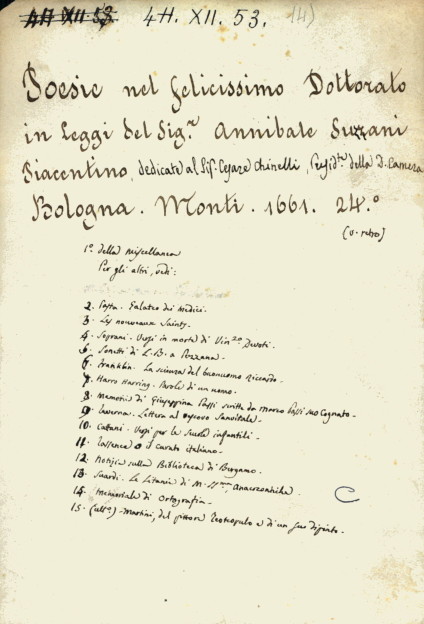 4H. XII. 53. 4H. XII. 53. (14)
Poesie nel felicissimo Dottorato
in Leggi del Sig.r Annibale Suzzani
Piacentino, dedicate al Sig. Cesare Chinelli, Presid.te della D. Camera
Bologna. Monti. 1661. 24.o
(v. retro)
1o. della Miscellanea
Per gli altri, vedi:
2. Pasta. Galateo dei Medici.
3. Les nouveaux Saints.
4. Soprani. Versi in morte di Vin.zo Devoti.
5. Sonetti di L. B. a Pezzana.
6. Franklin. La scienza del buonuomo Riccardo.
7. Harro Harring. Parole di un uomo.
8. Memorie di Giuseppina Passi scritte da Marco Passi suo Cognato.
9. Lettera al vescovo Sanvitale.
10. Cattani. Versi per le Scuole infantili.
11. o il curato italiano.
12. Notizie sulla Biblioteca di Bergamo.
13. Suardi. Le Litanie di M. SS.ma Anacreontiche.
14. Memoriale di Ortografia.
15. (ult.o) Martini, del pittore e di un suo dipinto.